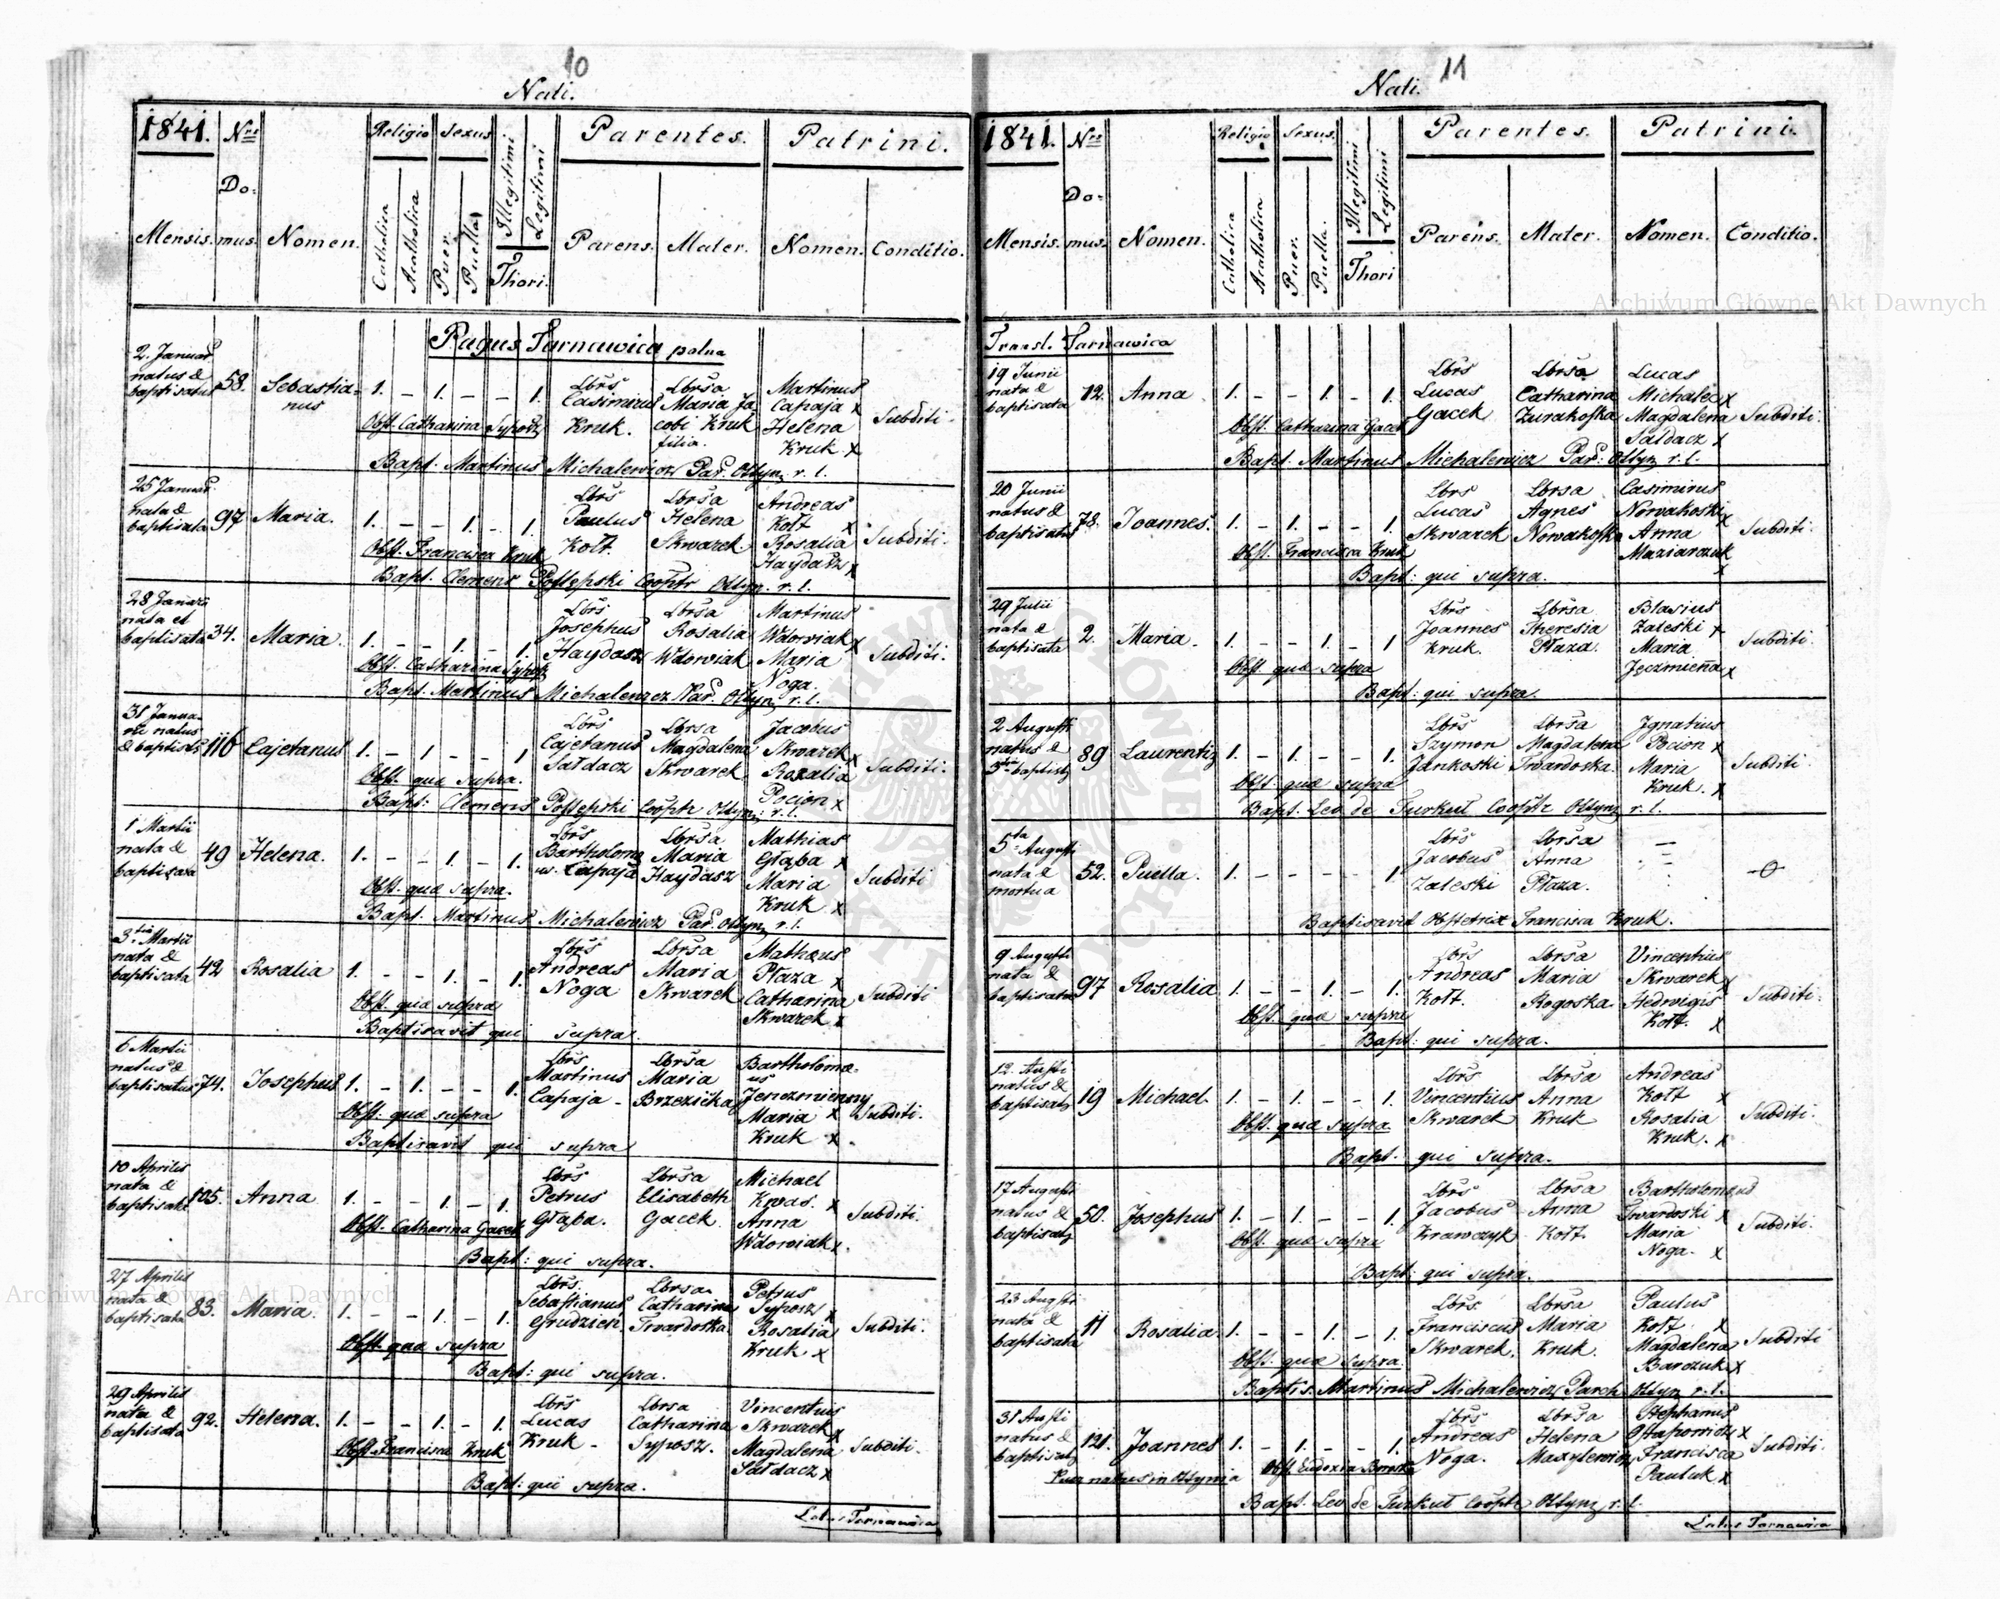 10
Nati.
1841. Nrus Religio Sexus Illegitimi Legitimi Parentes. Patrini.
Do-
Mensis. mus. Nomen. Catholica Acatholica Puer. Puella Thori. Parens. Mater. Nomen. Conditio.
Pagus Tarnawica polna
2. Januar. natus & baptisatus 58. Sebastia-
nus 1. - 1. - - 1.
Lbrs Casimirus Kruk. Lbrsa Maria Ja
cobi Kruk filia.
Martinus Capaja x Helena Kruk x Subditi.
Obst. Catharina Syposz
Bapt. Martinus Michalewicz Par. Ottyn. r. l.
25 Januar. nata & baptisata 97 Maria. 1. - - 1. - 1.
Lbrs Paulus Kołt. Lbrsa Helena Skwarek
Andreas Kołt x Rosalia Haydasz x Subditi.
Obst. Francisca Kruk
Bapt. Clemens Postępski Cooptr Ottyn. r. l.
28 Januari nata et baptisata 34. Maria. 1. - - 1. - 1.
Lbrs Josephus Haydasz Lbrsa Rosalia Wdowiak
Martinus Wdowiak x Maria Noga. Subditi.
Obst. Catharina Syposz
Bapt. Martinus Michalewicz Par. Ottyn. r. l.
31 Janua-
rii natus & baptis 116 Cajetanus 1. - 1 - - 1
Lbrs Cajetanus Sałdacz Lbrsa Magdalena Skwarek
Jacobus Skwarek x Rosalia Pocion x Subditi.
Obst. quæ supra.
Bapt: Clemens Postępski Cooptr Ottyn: r. l.
1 Martii nata & baptisata 49 Helena. 1. - - 1. - 1.
Lbrs Bartholomæ
us. Capaja Lbrsa Maria Haydasz
Mathias Głąba x Maria Kruk x Subditi
Obst. quæ supra.
Bapt. Martinus Michalewicz Par. Ottyn. r. l.
3tia Martii nata & baptisata 42 Rosalia 1. - - 1. - 1.
Lbrs Andreas Noga Lbrsa Maria Skwarek
Matheus Płaza x Catharina Skwarek x Subditi
Obst. quæ supra
Baptisavit qui supra.
6 Martii natus & baptisatus 74. Josephus 1. - 1. - - 1.
Lbrs Martinus Capaja - Lbrsa Maria Brzezicka
Bartholomæ-
us Maria x Kruk x Subditi.
Obst. quæ supra
Baptisavit qui supra
10 Aprilis nata & baptisata 105. Anna 1. - - 1. - 1.
Lbrs Petrus Głąba. Lbrsa Elisabeth Gacek.
Michael Kwas. x Anna Wdowiak x. Subditi.
Obst. Catharina Gacek
Bapt: qui supra.
27 Aprilis nata & baptisata 83. Maria. 1. - - 1. - 1.
Lbrs. Sebastianus Grudzien. Lbrsa Catharina Twardoska.
Petrus Syposz x Rosalia Kruk x Subditi.
Obst. quæ supra
Bapt: qui supra.
29 Aprilis nata & baptisata 92. Helena. 1. - - 1. - 1.
Lbrs Lucas Kruk - Lbrsa Catharina Syposz.
Vincentius Skwarek x Magdalena Sałdacz x Subditi.
Obst Francisca Kruk
Bapt: qui supra.
Latus Tarnawica
11
Nati.
1841. Nrus Religio Sexus. Illegitimi Legitimi Parentes. Patrini.
Do-
Mensis. mus. Nomen. Catholica Acatholica Puer. Puella. Thori Parens. Mater. Nomen. Conditio.
Transl. Tarnawica
19 Junii nata & baptisata 12. Anna 1. - - 1. - 1.
Lbrs Lucas Gacek Lbrsa Catharina Zurakoska
Lucas Michalec x Magdalena Sałdacz x Subditi.
Obst. Catharina Gacek
Bapt. Martinus Michalewicz Par: Ottyn. r. l.
20 Junii natus & baptisatus 78. Joannes. 1. - 1. - - 1.
Lbrs Lucas Skwarek Lbrsa Agnes Nowakoska
Casimirus Nowakoski x Anna Maziarczuk x Subditi.
Obst. Francisca Kruk
Bapt: qui supra.
29 Julii nata & baptisata 2. Maria. 1. - - 1. - 1
Lbrs Joannes Kruk. Lbrsa Theresia Płaza.
Blasius Zaleski x Maria x Subditi.
Obst. quæ supra
Bapt: qui supra.
2 Augusti natus & 89 Laurentius 1. - 1. - - 1.
Lbrs Szymon Jankoski Lbrsa Magdalena Twardoska.
Ignatius Pocion x Maria Kruk. x Subditi.
Obst quæ supra
Bapt. Leo de Turkuł Cooptr Ottyn. r. l.
5ta Augusti nata & mortua 52. Puella. 1. - - - - 1.
Lbrs Jacobus Zaleski Lbrsa Anna Płaza.
Baptisavit Obstetrix Francisca Kruk.
9 Augusti nata & baptisata 97 Rosalia 1. - - 1. - 1.
Lbrs Andreas Kołt. Lbrsa Maria Rogoska.
Vincentius Skwarek x Hedwigis Kołt. x Subditi.
Obst. quæ supra
Bapt: qui supra.
12 Austi natus & baptisatus 19 Michael. 1. - 1. - - 1.
Lbrs Vincentius Skwarek Lbrsa Anna Kruk
Andreas Kołt x Rosalia Kruk. x Subditi.
Obst. quæ supra
Bapt. qui supra.
17 Augusti natus & baptisatus 50. Josephus 1. - 1. - - 1.
Lbrs Jacobus Krawczyk Lbrsa Anna Kołt.
Bartholomæus Twardoski x Maria Noga. x Subditi.
Obst. quæ supra
Bapt: qui supra.
23 Augsti nata & baptisata 11 Rosalia. 1. - - 1. - 1.
Lbrs. Franciscus Skwarek. Lbrsa Maria Kruk.
Paulus Kołt x Magdalena Barczuk x Subditi
Obst. quæ supra.
Baptis. Martinus Michalewicz Parch Ottyn. r. l.
31 Austi natus & baptisatus 121. Joannes 1. - 1. - - 1.
Lbrs Andreas Noga. Lbrsa Helena
Stephanus x Francisca Pauluk x Subditi.
Puer natus in Ottynia
Bapt. Leo de Turkuł Cooptr Ottyn. r. l.
Latus Tarnawica
Archiwum Główne Akt Dawnych
Archiwum Główne Akt Dawnych
ARCHIWUM GŁÓWNE AKT DAWNYCH